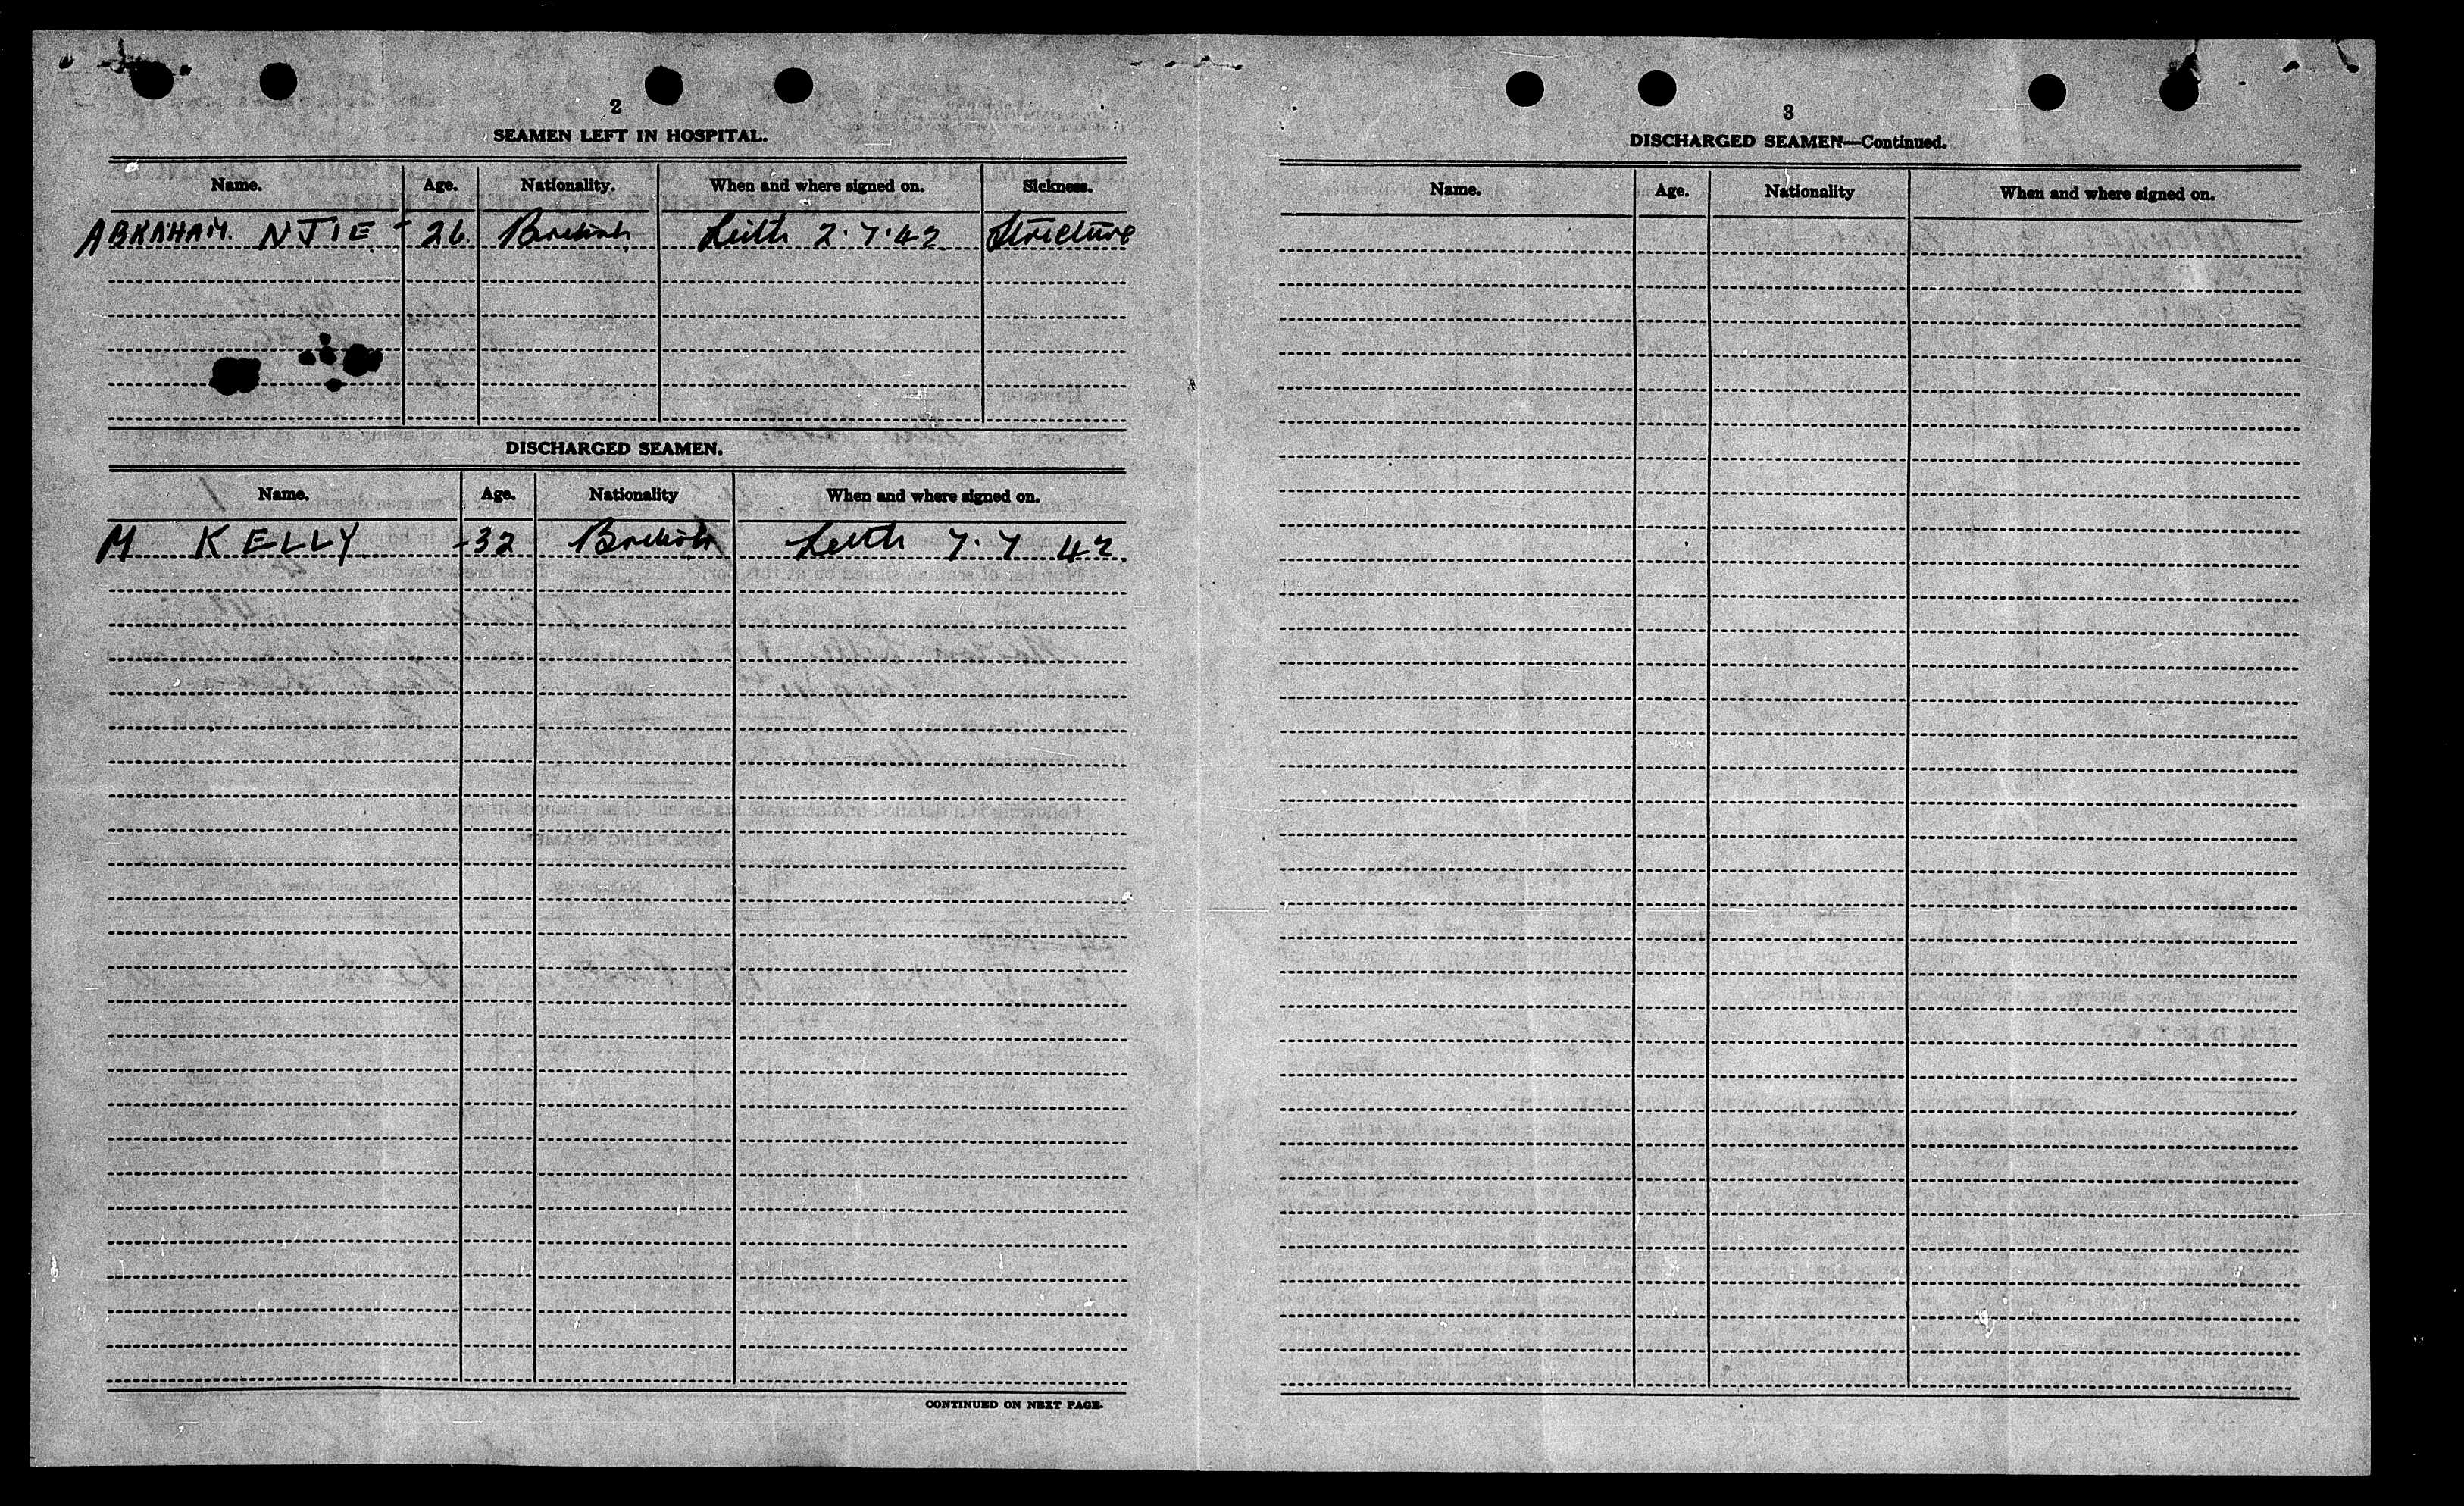 2
SEAMEN LEFT IN HOSPITAL.
Name. Age. Nationality. When and where signed on. Sickness.
ABRAHAM. NJIE - 26 British Leith 2.7.42 Stricture
DISCHARGED SEAMEN.
Name. Age. Nationality When and where signed on.
M KELLY - 32 British Leith 7.7 42
CONTINUED ON NEXT PAGE.
3
DISCHARGED SEAMEN—Continued.
Name. Age. Nationality When and where signed on.